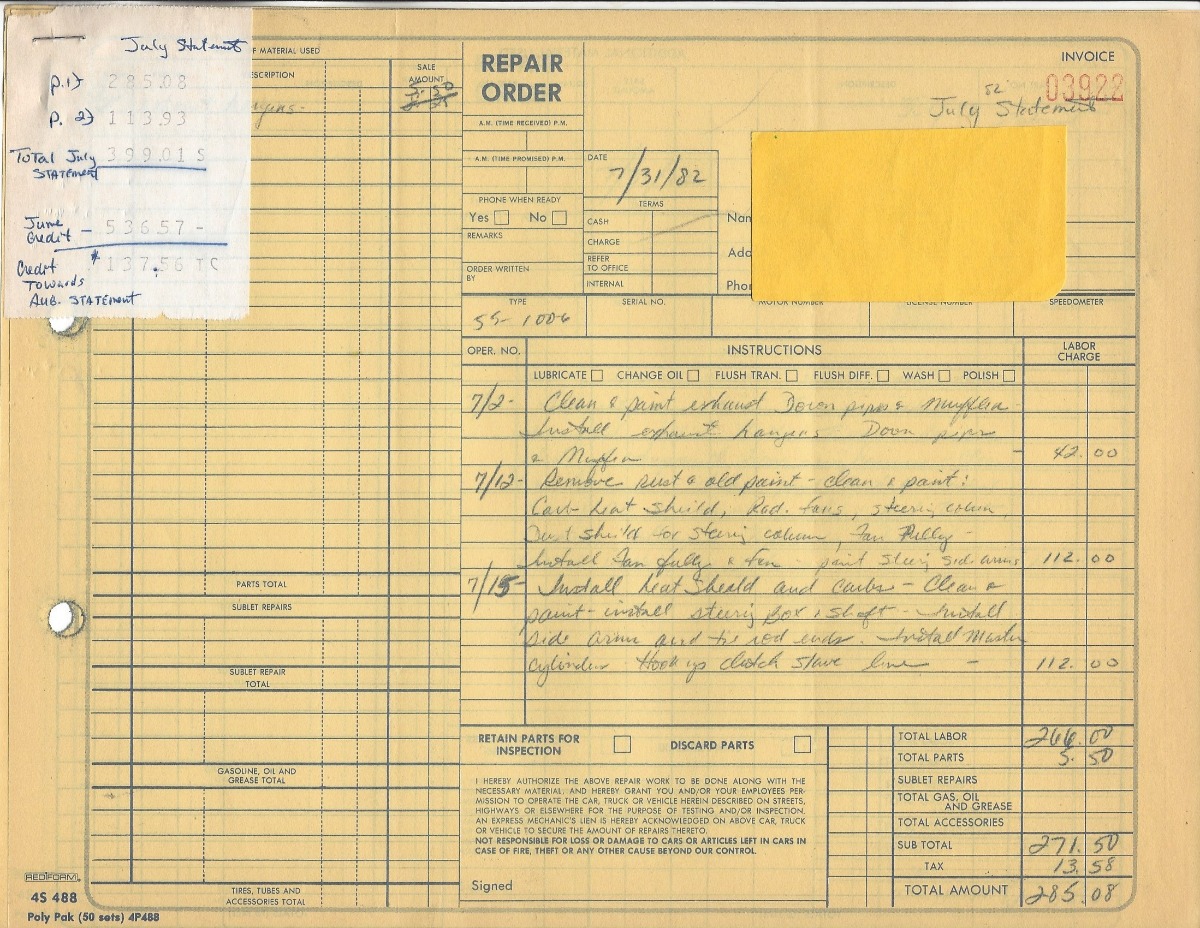 July Statement
p.1) 285.08
p.2) 113.93
Total July 399.01 S
STATEMENT
June
Credit - 536.57 -
Credit $137.56 TC
Towards
Aug. STATEMENT
OF MATERIAL USED
ESCRIPTION
SALE
AMOUNT
5.50
REPAIR
ORDER
A.M. (TIME RECEIVED) P.M.
A.M. (TIME PROMISED) P.M.
PHONE WHEN READY
Yes No
REMARKS
ORDER WRITTEN
BY
DATE
7/31/82
TERMS
CASH
CHARGE
REFER
TO OFFICE
INTERNAL
INVOICE
03922
82
July Statement
Nam
Add
Phon
TYPE
SERIAL NO.
MOTOR NUMBER
LICENSE NUMBER
SPEEDOMETER
SS-1006
OPER. NO.
INSTRUCTIONS
LABOR
CHARGE
LUBRICATE CHANGE OIL FLUSH TRAN. FLUSH DIFF. WASH POLISH
7/2- Clean & paint exhaust Down pipes & Muffler
Install exhaust hangers Down pipes
& Muffler - 42.00
7/12- Remove rust & old paint - clean & paint:
Carb heat sheild, Rad. fans, steering colum,
Dust sheild for steering column, Fan Pully -
Install Fan pully & fan - paint steering side arms 112.00
7/15- Install heat Sheald and carbs - Clean &
paint - install steering box & shaft - Install
side arm and tie rod ends. Install Master
cylinders Hook up clutch slave line - 112.00
PARTS TOTAL
SUBLET REPAIRS
SUBLET REPAIR
TOTAL
GASOLINE, OIL AND
GREASE TOTAL
TIRES, TUBES AND
ACCESSORIES TOTAL
RETAIN PARTS FOR
INSPECTION
DISCARD PARTS
I HEREBY AUTHORIZE THE ABOVE REPAIR WORK TO BE DONE ALONG WITH THE
NECESSARY MATERIAL, AND HEREBY GRANT YOU AND/OR YOUR EMPLOYEES PER-
MISSION TO OPERATE THE CAR, TRUCK OR VEHICLE HEREIN DESCRIBED ON STREETS,
HIGHWAYS OR ELSEWHERE FOR THE PURPOSE OF TESTING AND/OR INSPECTION.
AN EXPRESS MECHANIC'S LIEN IS HEREBY ACKNOWLEDGED ON ABOVE CAR, TRUCK
OR VEHICLE TO SECURE THE AMOUNT OF REPAIRS THERETO.
NOT RESPONSIBLE FOR LOSS OR DAMAGE TO CARS OR ARTICLES LEFT IN CARS IN
CASE OF FIRE, THEFT OR ANY OTHER CAUSE BEYOND OUR CONTROL.
Signed
TOTAL LABOR 266.00
TOTAL PARTS 5.50
SUBLET REPAIRS
TOTAL GAS, OIL
AND GREASE
TOTAL ACCESSORIES
SUB TOTAL 271.50
TAX 13.58
TOTAL AMOUNT 285.08
REDIFORM
4S 488
Poly Pak (50 sets) 4P488